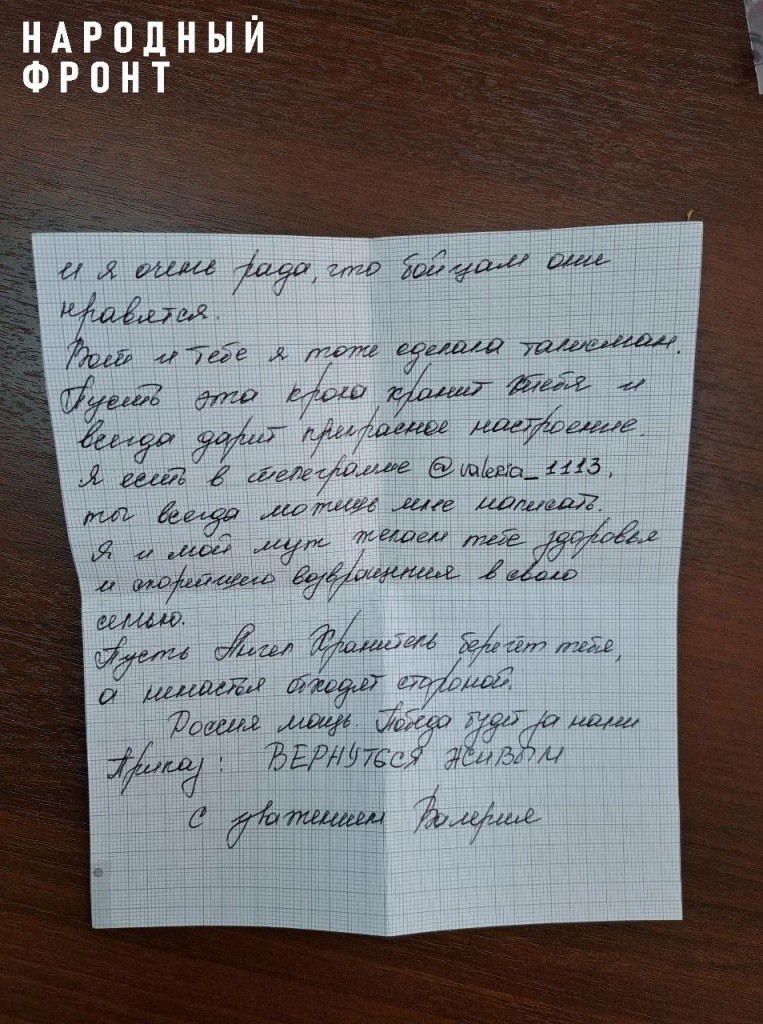 НАРОДНЫЙ
ФРОНТ
и я очень рада, что бойцам они
нравятся.
Вот и тебе я тоже сделала талисман.
Пусть эта кроха хранит тебя и
всегда дарит прекрасное настроение.
Я есть в телеграмме @valeria_1113,
ты всегда можешь мне написать.
Я и мой муж желаем тебе здоровья
и скорейшего возвращения в свою
семью.
Пусть Ангел Хранитель бережёт тебя,
а ненастья обходят стороной.
Россия мощь. Победа будет за нами
Приказ: ВЕРНУТЬСЯ ЖИВЫМ
С уважением Валерия